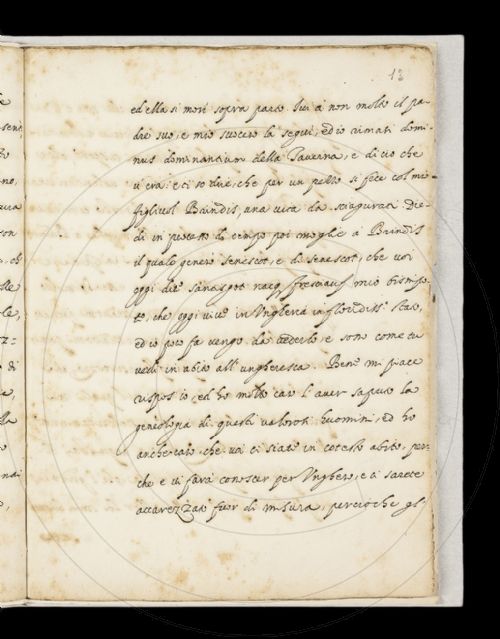 13
ed ella si morì sopra parto. Ivi à non molto il pa-
dre suo, e mio suocero la seguì, ed io rimasi domi-
nus dominantium della Taverna, e di ciò che
v'era: e ti so dire, che per un pezzo si fece col mio
figliuol Brindis, una vita da sciagurati. Die-
di in processo di tempo poi moglie à Brindis
il quale generò Senescot, e di Senescot, che voi
oggi dite Sarasgot nacq
to, che oggi vive in Ungheria in floridiss.º stato,
ed io poco fa vengo da vederlo, e sono come tu
vedi in abito all'ungheresca. Bene mi piace
risposi io, ed ho molto caro l'aver saputo la
geneologia di questi valorosi huomini, ed ho
anche caro, che voi ci siate in cotesto abito, per-
che e vi farà conoscer per Unghero, e ti sarete
accarezzato fuor di misura, percioche gl'